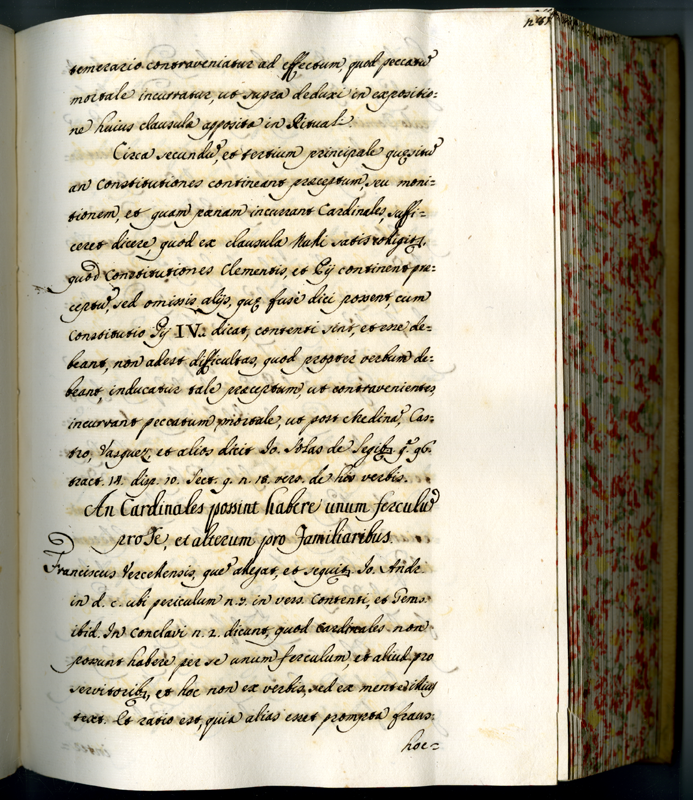 temerario contraveniatur ad effectum quod peccatũ
mortale incurratur, ut supra deduxi in expositio=
ne huius clausula apposita in Rituali.
Circa secundũ, et tertium principale quęsitũ
an Constitutiones contineant præceptum, seu moni=
tionem, et quam pænam incurrant Cardinales, suffi=
ceret dicere, quod ex clausula Nulli satis
quod Constitutiones Clementis, et Pij continent præ=
ceptũ, sed omissis alijs, quę fusè dici possent, cum
Constitutio Pij IV.: dicat, contenti sint, et esse de=
beant, non adest difficultas, quod propter verbum de=
beant, inducatur tale præceptum, ut contravenientes
incurrant peccatum mortale, ut post Medinã, Cas=
tro, Vasquez, et alios dicit Io. Salas de Legib. q. 96.
tract. 14. disp. 10. Sect. 9. n. 18. vers. de his verbis.
An Cardinales possint habere unum ferculũ
pro se, et alterum pro familiaribus
Franciscus Vercellensis, quẽ allegat, et sequit. Io. Andr.
in d. c. ubi periculum n. 3. in vers. Contenti, et Gem.
ibid. In conclavi n. 2. dicunt, quod Cardinales non
possunt habere per se unum ferculum, et aliud pro
servitorib, et hoc non ex verbis, sed ex mente illius
text. Et ratio est, quia alias esset prompta fraus:
hoc=